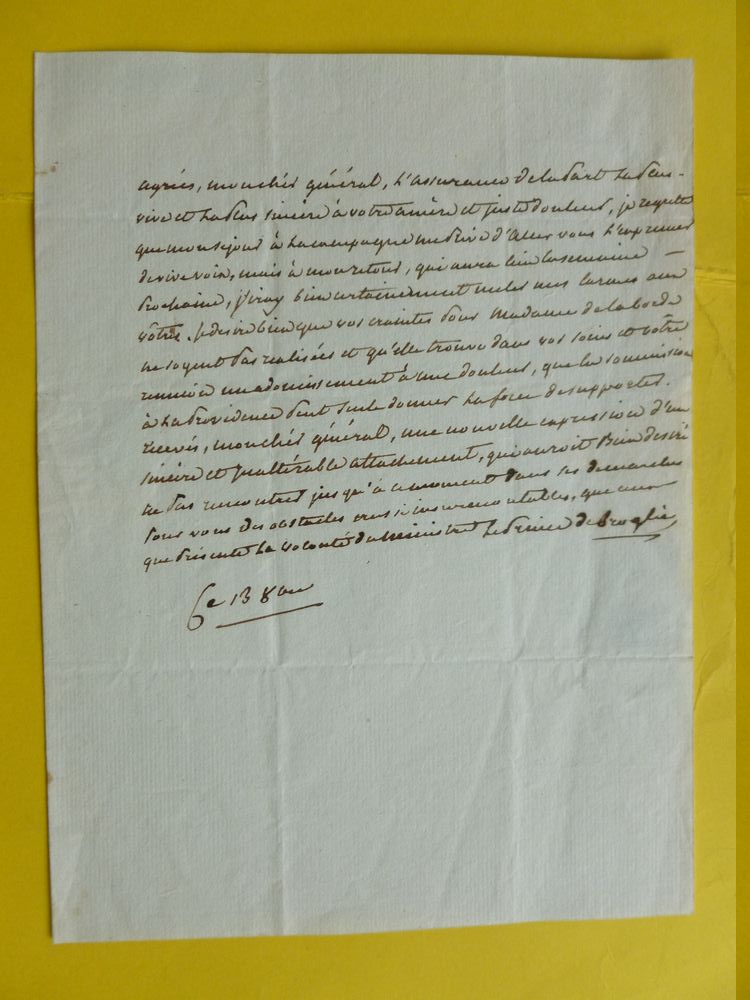 agreés, mon chér général, l'assurance de la part la plus
vive et la plus sincère à votre amère et juste douleur, je regrette
que mon sejour à la campagne me prive d'aller vous l'exprimer
de vive voix, mais à mon retour, qui aura lieu la semaine
prochaine, j'iray bien certainement meler mes larmes aux
vôtres. je desire bien que vos craintes pour Madame de la borde
ne soyent pas realisées et qu'elle trouve dans vos soins et vôtre
reunion un adoucissement à une douleur, que la soumission
à la providence peut seule donner la force de supporter.
recevés, mon chér général, une nouvelle expression d'un
sincère et inaltérable attachement, qui auroit bien desiré
ne pas rencontrer jusqu'à ce moment dans ses demarches
pour vous des obstacles aussi insurmontables, que ceux
que présente la volonté du Ministre Le prince de Broglie
Ce 13 8bre